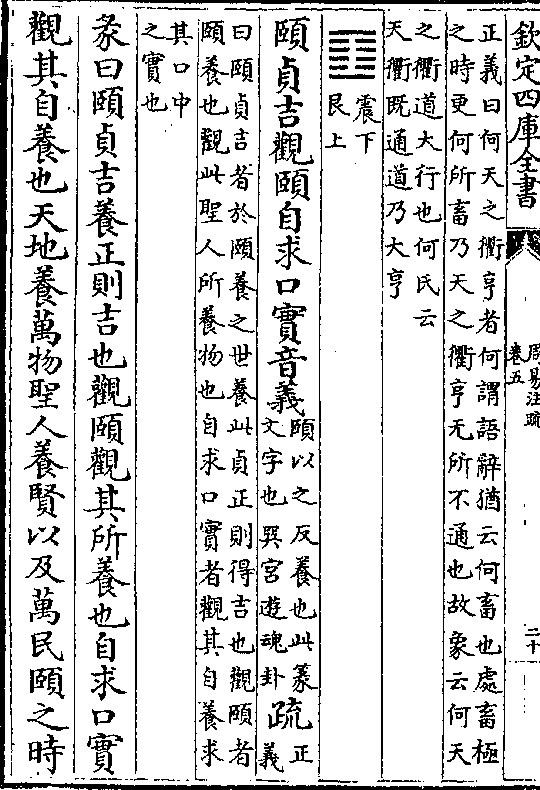 欽定四庫全書
周易注疏
卷五
二十
正義曰何天之衢亨者何謂語辭猶云何畜也處畜極
之時更何所畜乃天之衢亨无所不通也故象云何天
之衢道大行也何氏云
天衢既通道乃大亨
震下
艮上
頤貞吉觀頤自求口實音義
頤以之反養也此篆
文字也巽宮遊魂卦
疏
正
義
曰頤貞吉者於頤養之世養此貞正則得吉也觀頤者
頤養也觀此聖人所養物也自求口實者觀其自養求
其口中
之實也
彖曰頤貞吉養正則吉也觀頤觀其所養也自求口實
觀其自養也天地養萬物聖人養賢以及萬民頤之時